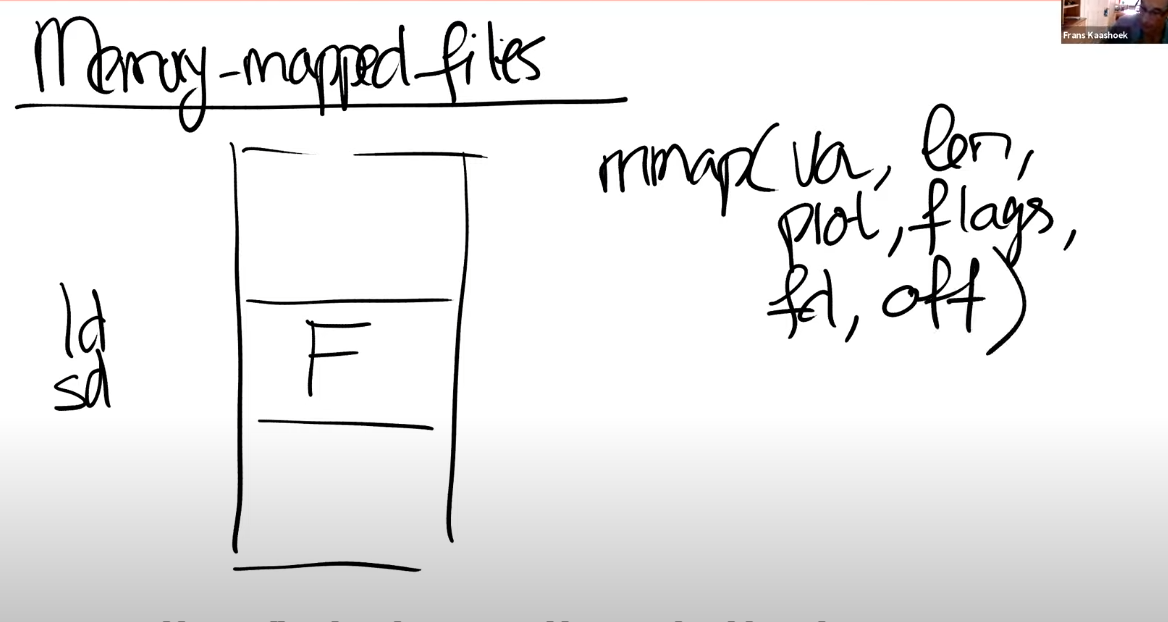 Memory-mapped files
Frans Kaashoek
mmap(va, len,
prot, flags,
fd, off)
ld
sd
F